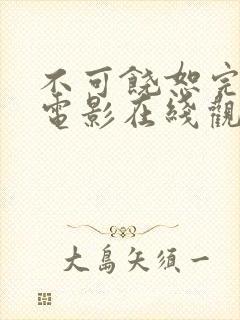 不可饒恕完
電影在綫觀
大島矢須一